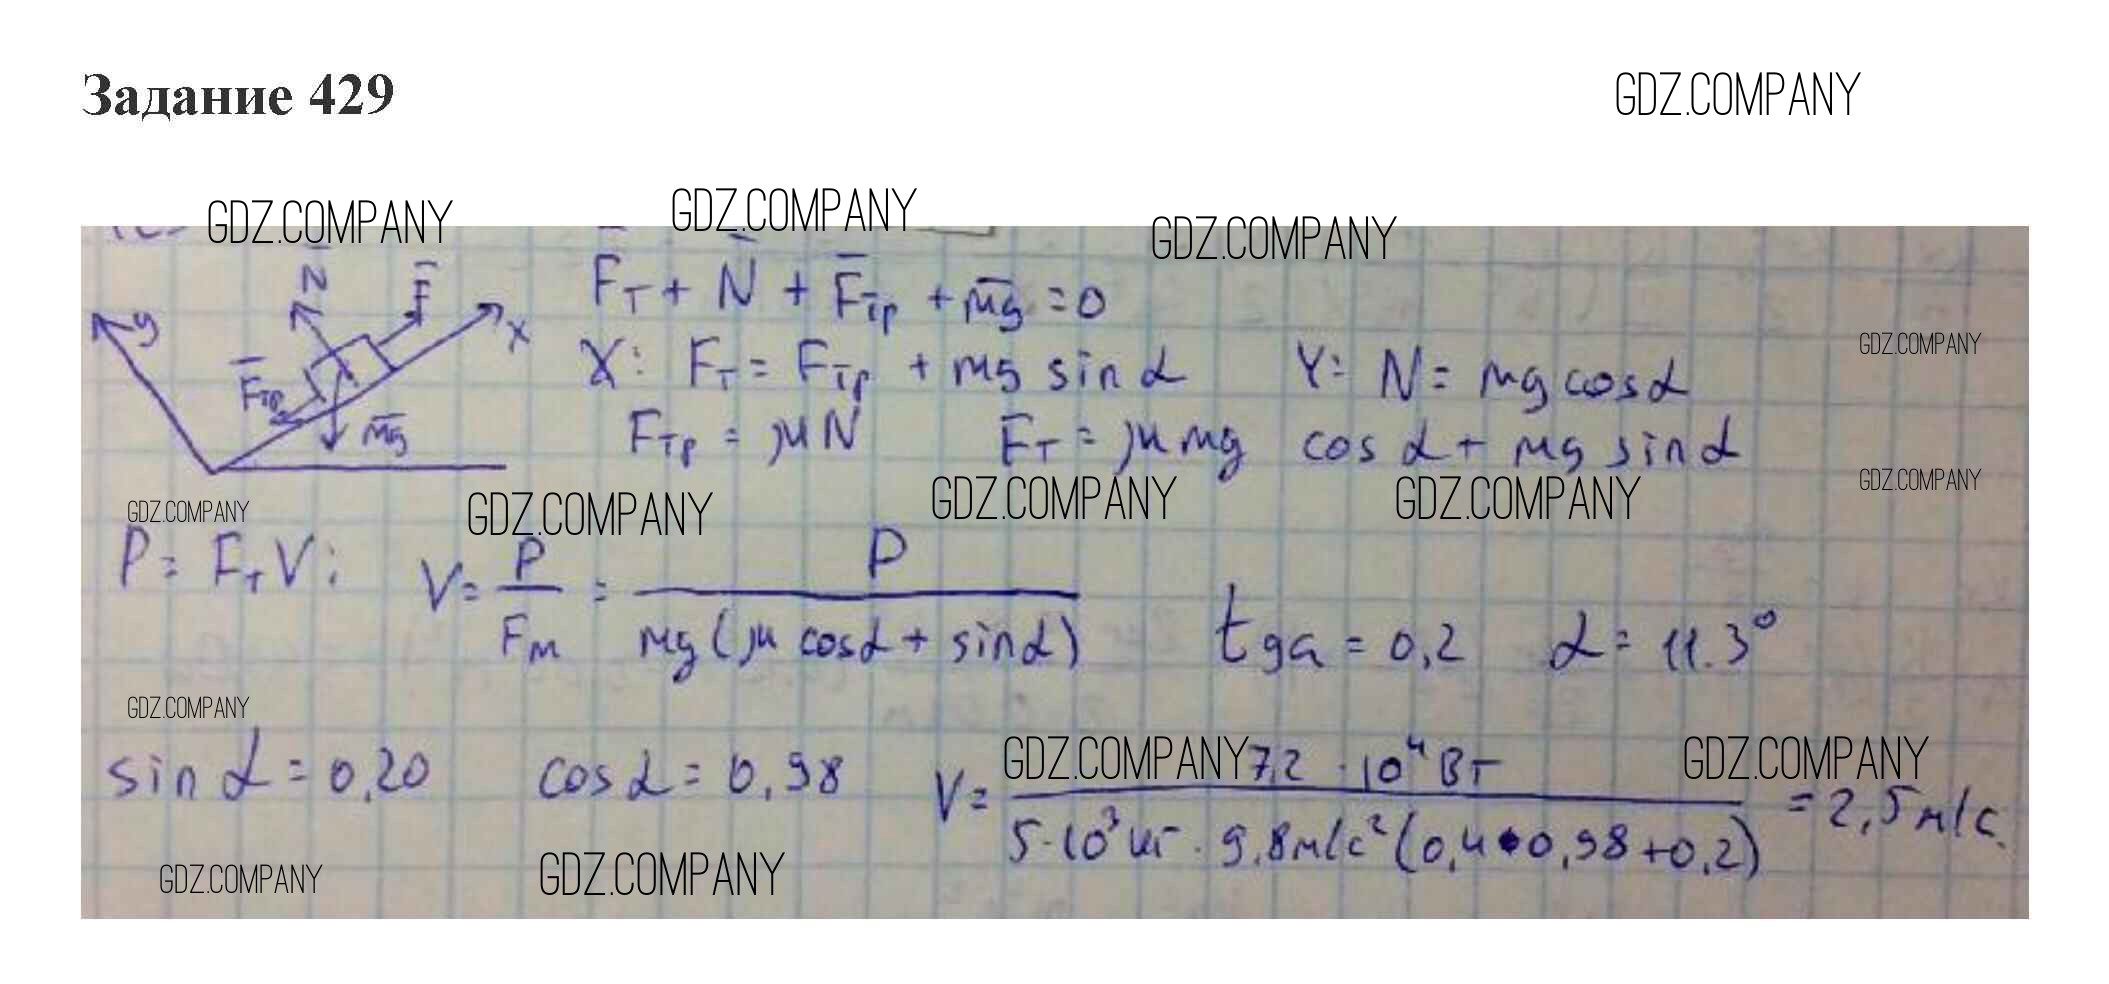 Задание 429
GDZ.COMPANY
GDZ.COMPANY GDZ.COMPANY GDZ.COMPANY
y N F X Fтр mg
Fт + N + Fтр + mg = 0
X: Fт = Fтр + mg sin α Y: N = mg cos α
GDZ.COMPANY
Fтр = μN Fт = μmg cos α + mg sin α
GDZ.COMPANY GDZ.COMPANY GDZ.COMPANY GDZ.COMPANY GDZ.COMPANY
P = FтV; V = P/Fm = P/(mg(μ cosα + sinα)) tga = 0,2 α = 11.3°
GDZ.COMPANY
sin α = 0,20 cosα = 0,98 V = 7,2 · 10⁴ Вт/(5·10³ кг · 9,8м/с² (0,4•0,98+0,2)) = 2,5м/с.
GDZ.COMPANY GDZ.COMPANY
GDZ.COMPANY GDZ.COMPANY